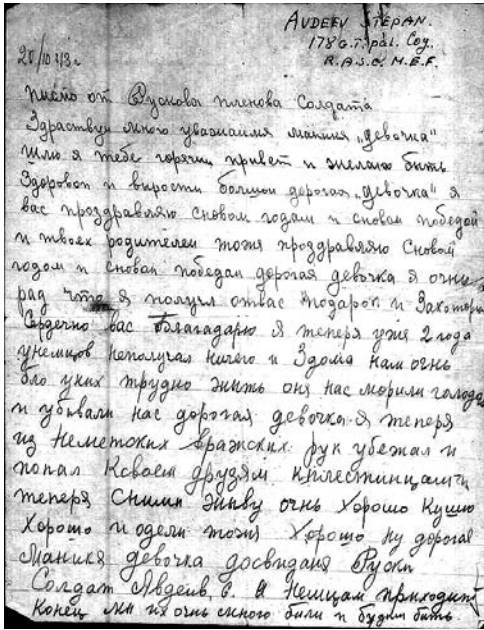 AVDEEV STEPAN.
178 G.T. pal. Coy.
R.A.S.C. M.E.F.
писмо от Рускова пленова Солдата
Здраствуи много уважаимя маниня „девочка"
шлю я тебе горячии привет и желаю быть
Здоровои и вырости болшои дорогая „девочка" я
вас проздравляю сновом годам и сновои победои
и твоех родителеи тожя проздравляю Сновом
годом и сновои победаи дорогая девочка я очнь
рад что я получл отвас подарок и За которы
Сердечно вас благадарю я теперя уже 2 года
унемцов неполучал ничего и Здома нам очнь
бло уних трудно жыть оня нас морили голодам
и убивали нас дорогая девочка я теперя
из Неметских вражских рук убежал и
попал Ксваем друзям
теперя Сними жыву очнь Хорошо Кушаю
Хорошо и одели тожя Хорошо ну дорогая
Маникя девочка досвиданя Руски
Солдат Явдеив С. А Немцам приходит
Конец мы их очнь много били и будим бить.